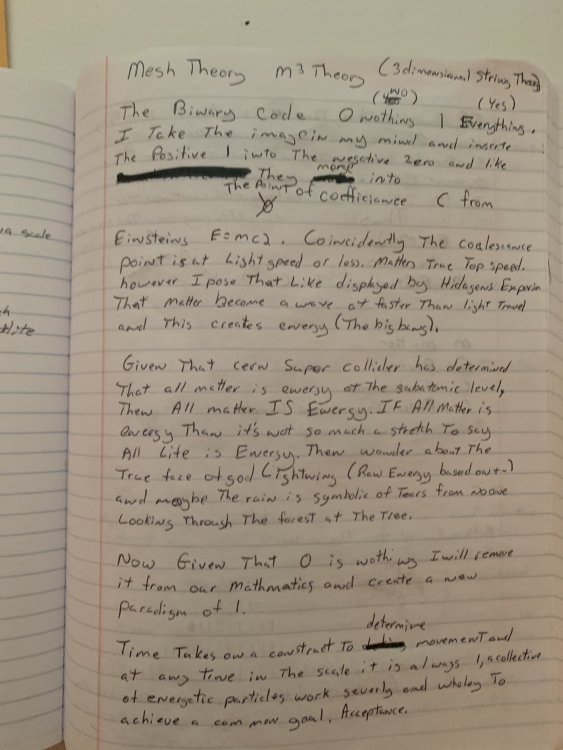 Mesh Theory M³ Theory (3 dimensional String Theory)
(NO) (Yes)
The Binary Code 0 nothing 1 Everything.
I Take The image in my mind and inserte
The Positive 1 into The negative zero and like
They morph into
The Point of coefficiance C from
Einsteins E=mc2. Coincidently The coalessance
point is at Light speed or less. Matters True Top speed.
however I pose That Like displayed by Hidagens Experim
That matter become a wave at faster Than light Travel
and This creates energy (The big bang).
Given That cern Super collider has determined
That all matter is energy at The subatomic level,
Then All matter IS Energy. IF All Matter is
energy Than it's not so much a stretch To say
All Life is Energy. Then wonder about The
True face of god Lightning (Raw Energy based on +-)
and maybe The rain is symbolic of Tears from No one
Looking Through The forest at The Tree.
Now Given That 0 is nothing I will remove
it from our Mathmatics and create a new
Paradigm of 1.
determine
Time Takes on a construct To movement and
at any Time in The scale it is always 1, a collective
of energetic particles work severly and wholey To
achieve a common goal. Acceptance.
a scale